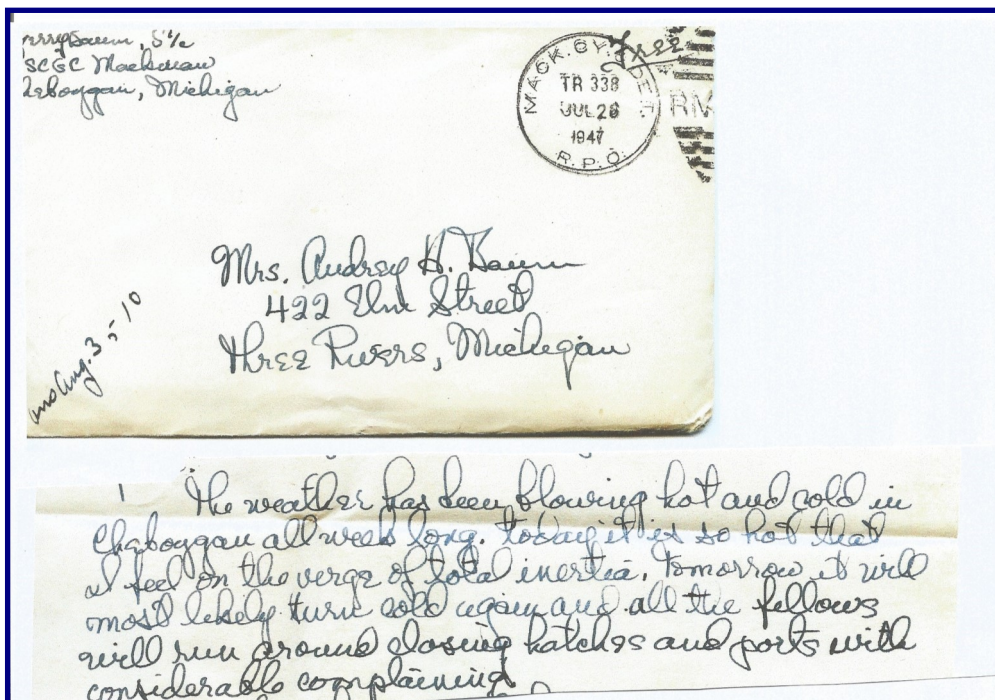 Baum, S 1/c
SCGC Mackinaw
heboygan, Michigan
Free
MACK. CY. & DET.
TR 338
JUL 28
1947
R.P.O.
RM
Mrs. Audrey H. Baum
422 Elm Street
Three Rivers, Michigan
ans Aug. 3 - 10
The weather has been blowing hot and cold in
Cheboygan all week long. today it is so hot that
I feel on the verge of total inertia. tomorrow it will
most likely turn cold again and all the fellows
will run around closing hatches and ports with
considerable complaining